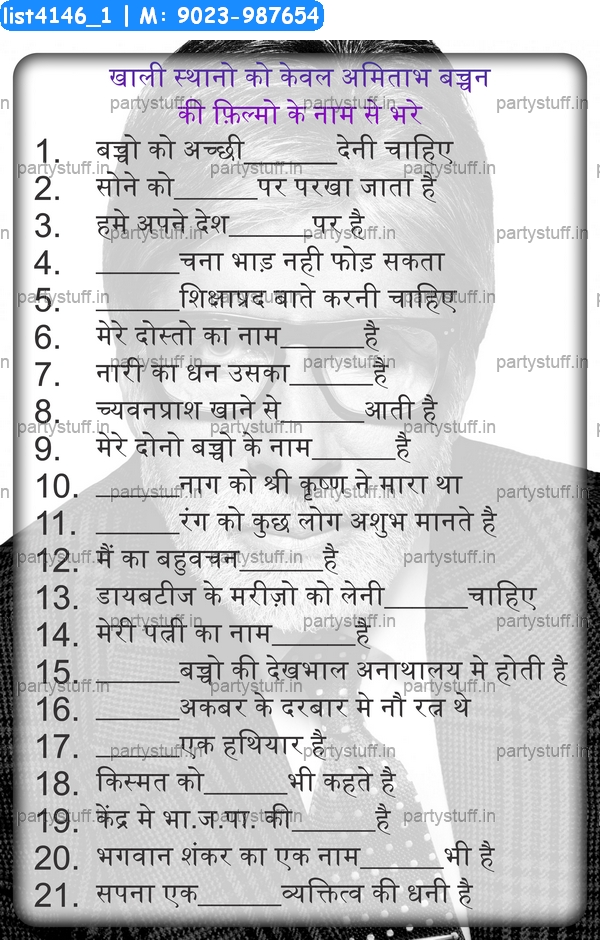 list4146_1 | M: 9023-987654
खाली स्थानो को केवल अमिताभ बच्चन
की फ़िल्मो के नाम से भरे
1. बच्चो को अच्छी______देनी चाहिए
2. सोने को______पर परखा जाता है
3. हमे अपने देश______पर है
4. ______चना भाड़ नही फोड़ सकता
5. ______शिक्षाप्रद बाते करनी चाहिए
6. मेरे दोस्तो का नाम______है
7. नारी का धन उसका______है
8. च्यवनप्राश खाने से______आती है
9. मेरे दोनो बच्चो के नाम______है
10. ______नाग को श्री कृष्ण ने मारा था
11. ______रंग को कुछ लोग अशुभ मानते है
12. मैं का बहुवचन______है
13. डायबटीज के मरीज़ो को लेनी______चाहिए
14. मेरी पत्नी का नाम______है
15. ______बच्चो की देखभाल अनाथालय मे होती है
16. ______अकबर के दरबार मे नौ रत्न थे
17. ______एक हथियार है
18. किस्मत को______भी कहते है
19. केंद्र मे भा.ज.पा. की______है
20. भगवान शंकर का एक नाम______भी है
21. सपना एक______व्यक्तित्व की धनी है
partystuff.in